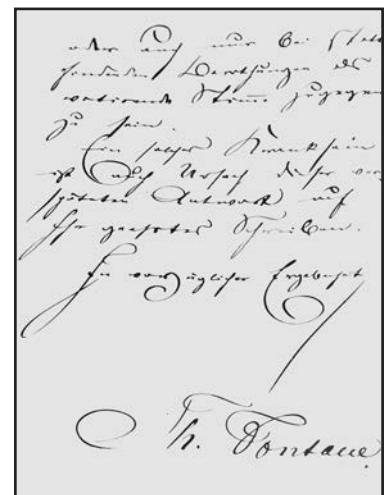 oder auch nur bei statt
findenden Berathungen als
votirende Stimme zugegen
zu sein.
Ein solches Kranksein
ist auch Ursach dieser ver
späteten Antwort auf
Ihr geehrtes Schreiben.
In vorzüglicher Ergebenheit
Th. Fontane.